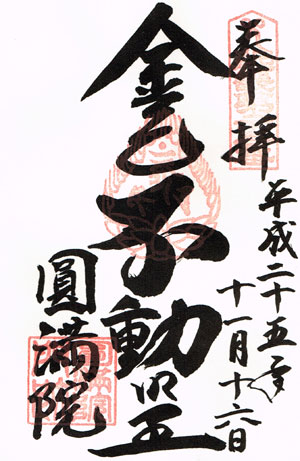 奉拝
平成二十五年
十一月十六日
金色不動明王
圓満院